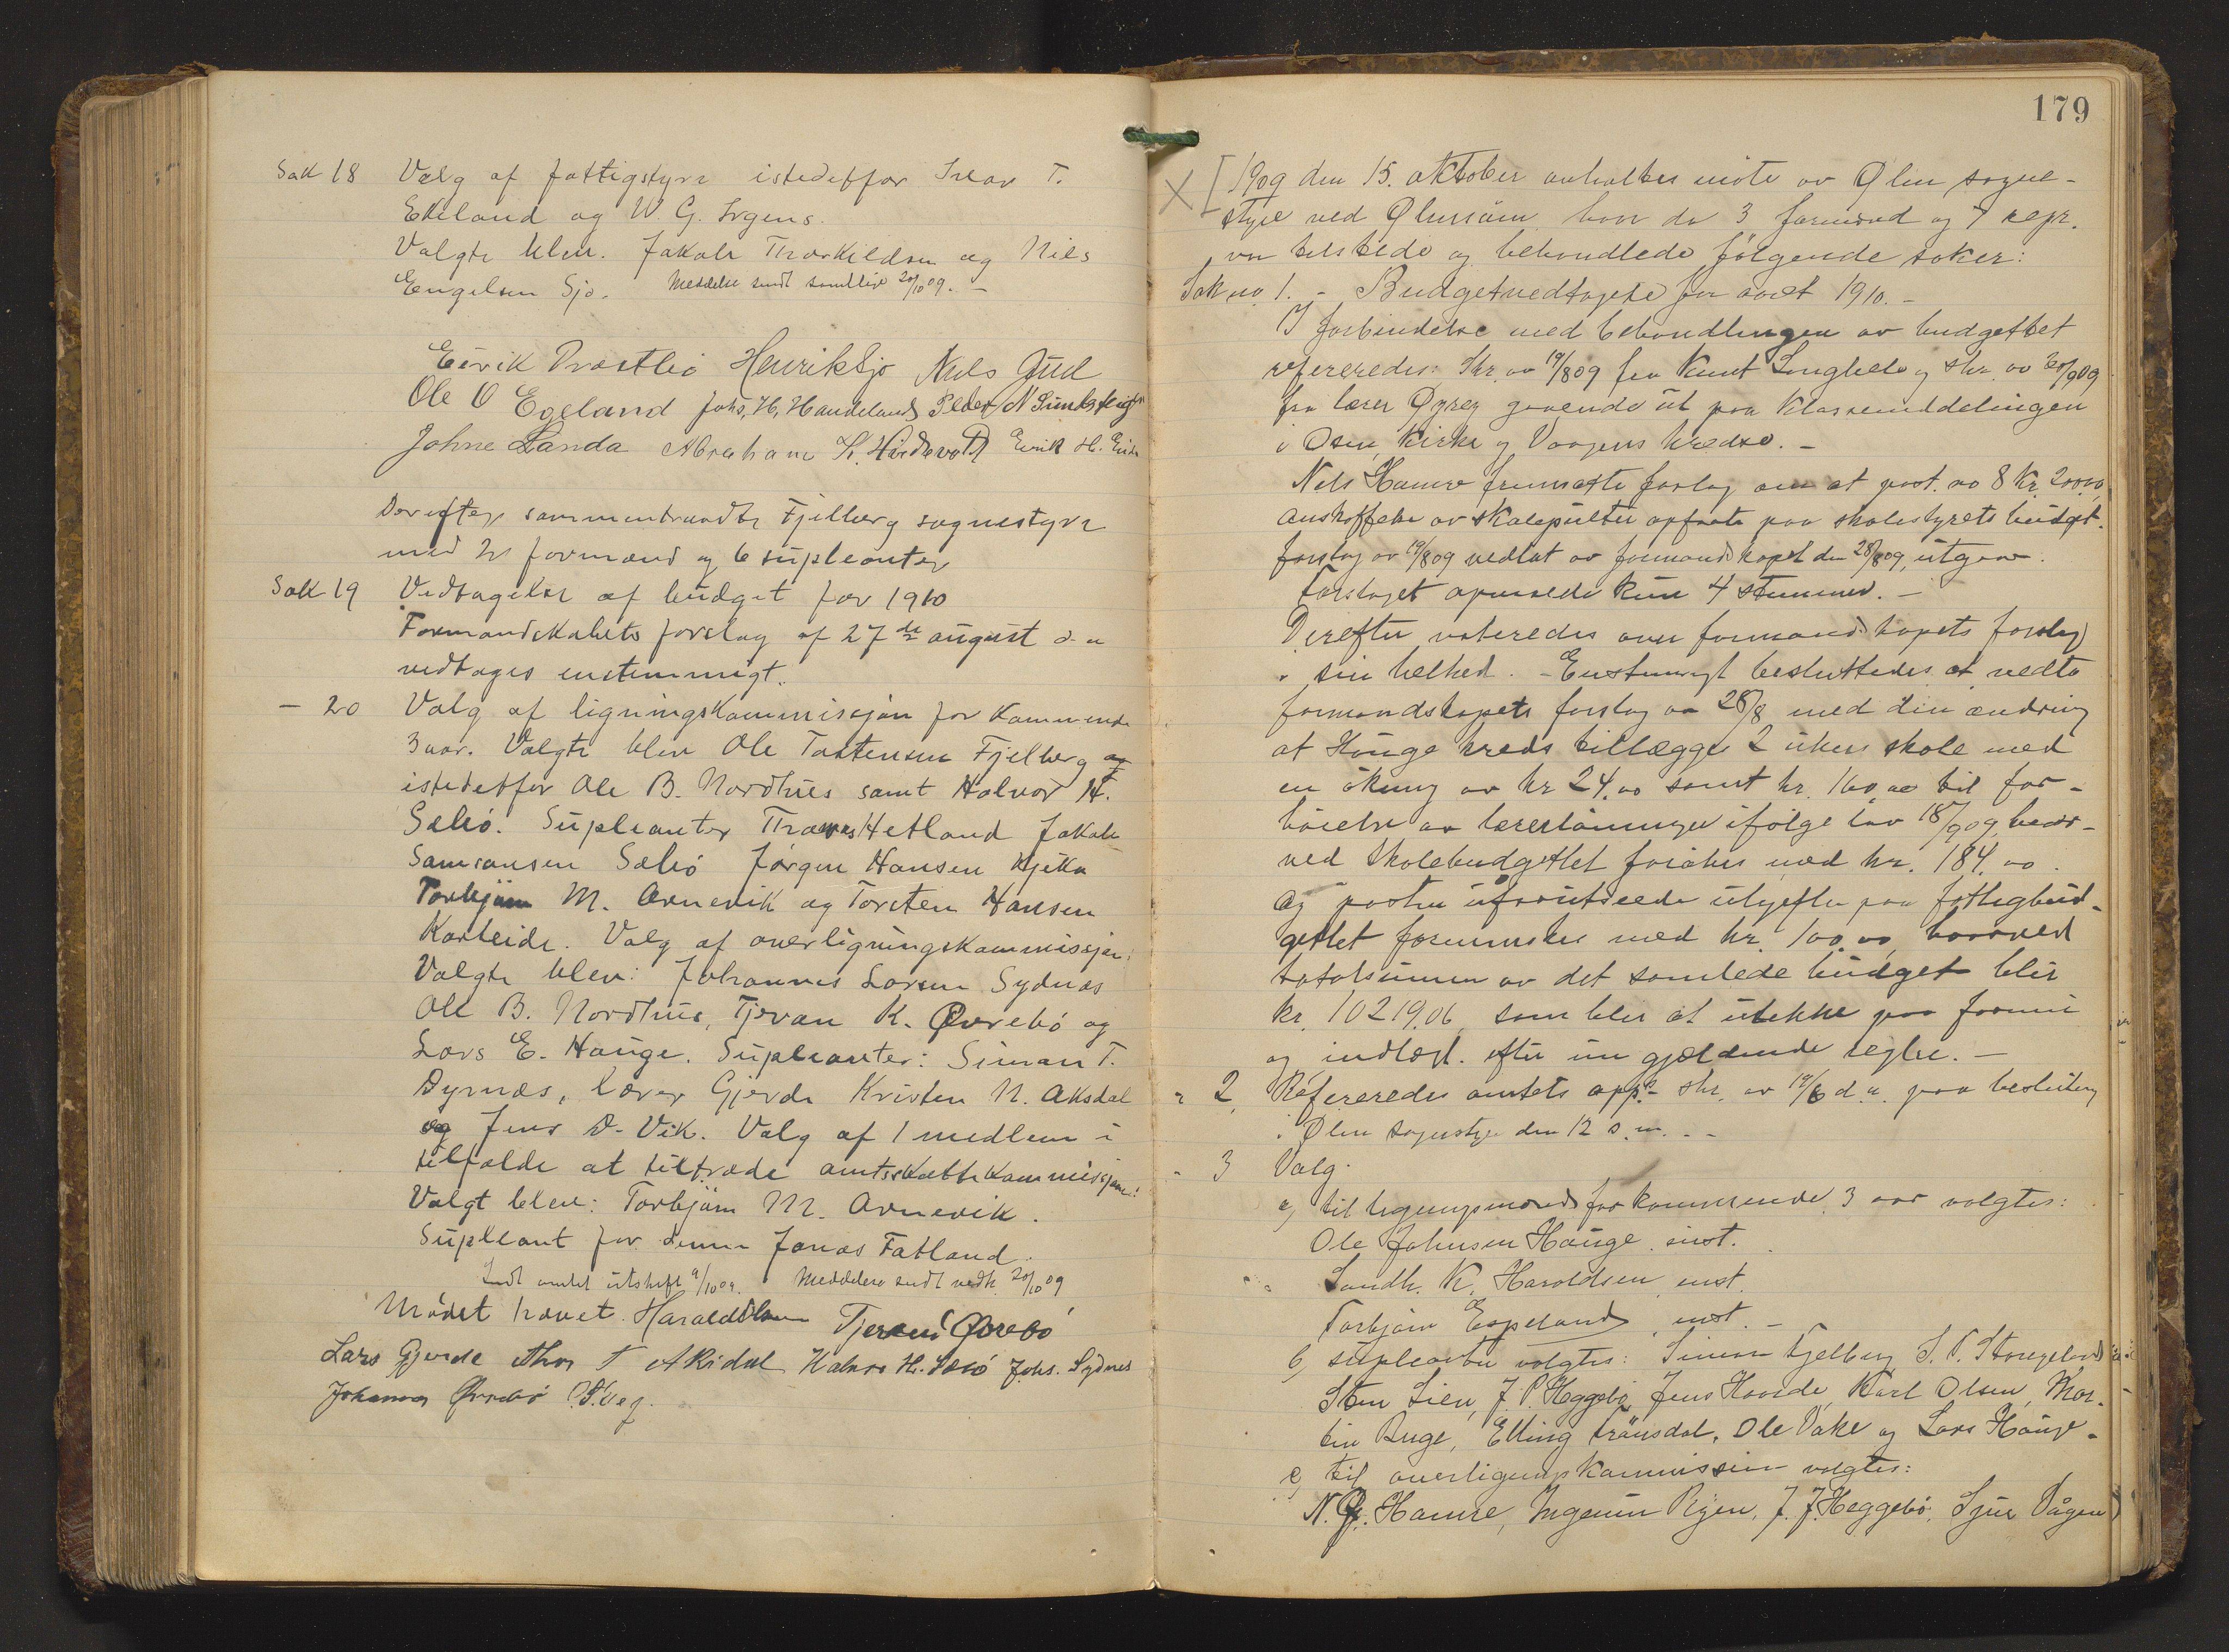 Sak 18 Valg af fattigstyre istedetfor Ivar T.
Ekeland og W. G.
Valgte blev. Jakob Thorkildsen og Nils
Engelsen Sjo. Meddelse sendt samtlige 20/10 09. -
Eirik Prestbö Henrik Sjo Nils Jud
Ole O Egeland Johs. H. Handeland Peder N
Johne Landa Abraham Eirik H.
Derefter sammentraadte Fjelberg sognestyre
med 2 formænd og 6 supleanter
Sak 19 Vedtagelse af budget for 1910
Formandskabets forslag af 27de august d. a
vedtages enstemmigt.
- 20 Valg af ligningskommissjon for kommende
3 aar. Valgte blev Ole Tostensen Fjelberg og
istedetfor Ole B. Nordhus samt Halvor H.
Sæbö. Supleanter Thomas Hetland Jakob
Samsonsen Sæbö Jørgen Hansen Kjeka
Torbjörn M. Arnevik og Torsten Hansen
Karteide. Valg af overligningskommissjon:
Valgte blev: Johannes Larsen Sydnæs
Ole B. Nordhus, Tjeran K. Øvrebö og
Lars E. Hauge. Supleanter: Simon T.
Dyrnæs, lærer Gjerde Kristen N. Aksdal
og Jens D. Vik. Valg af 1 medlem i
tilfælde at tiltræde amtsskattekommissjonen:
Valgt blev: Torbjörn M. Arnevik.
Supleant for denne Jonas Fatland.
Sendt amtet utskrift 9/10 09. Meddelse sendt vedk. 20/10 09
Mödet hævet. Harald Tjeran Øvrebö
Lars Gjerde Thor T Aksdal Halvor H. Sæbö Johs. Sydnes
Johannes Øvrebö
179
X [ 1909 den 15. oktober avholdtes möte av Ølen sogne-
styre ved Ølensöen hvor da 3 formænd og 7 repr.
var tilstede og behandlede følgende saker:
Sak no 1. - Budgetvedtagelse for aaret 1910. -
I forbindelse med behandlingen av budgettet
refereredes: Skr. av 19/8 09 fra Knut Longhelo og skr. av 30/9 09
fra lærer Øyrey gaaende ut paa klasseinddelingen
i Osen, Kirke og Vaagens kredse. -
Nils Hamre fremsatte forslag om at post. no 8 Kr. 200.00
Anskaffelse av skolepulter opført paa skolestyrets budget-
forslag av 19/8 09 vedtat av formandskapet den 28/8 09, utgaar.
Forslaget opnaadde kun 4 stemmer. -
Derefter voteredes over formandskapets forslag
i sin helhed. - Enstemmigt besluttedes at vedta
formandskapets forslag av 28/8 med den ændring
at Hauge kreds tillægges 2 ukers skole med
en ökning av kr 24.00 samt kr. 160.00 til for-
höielse av lærerlönninger ifölge lov 18/9 09, hvor-
ved skolebudgettet forökes med kr. 184.00.
Og posten uforutseede utgifter paa fattigbud-
gettet formindskes med kr. 100.00, hvorved
totalsummen av det samlede budget blir
kr. 10219.06, som blir at utlikne paa formue
og indtægt. efter nu gjældende regler. -
" 2, Refereredes amtets app. skr. av 19/6 d. a. paa beslutning
i Ølen sognestyre den 12 s. m. - -
" 3 Valg.
a, til ligningsmænd for kommende 3 aar valgtes:
Ole Johnsen Hauge enst.
Landh. K. Haroldsen enst.
Torbjörn Espeland, enst. -
b, supleanter valgtes: Simon Fjelberg, S. P.
Sten Lien, J. P. Heggebö, Jens Hovde, Karl Olsen, Mar-
tin Buge, Elling Frönsdal, Ole Vake og Lars Hauge.
c, til overligningskommission valgtes:
N. Ø. Hamre, Ingemun Rygen, J. J. Heggebö, Sjur Vågen